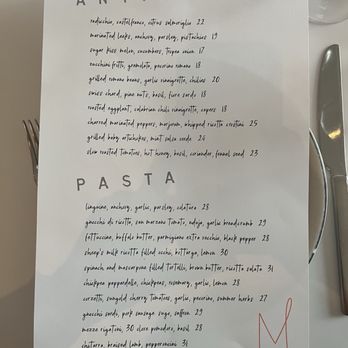 radicchio, castelfranco, citrus salmoriglio 22
marinated leeks, anchovy, parsley, pistachios 19
sugar kiss melon, cucumbers, tropea onion 17
zucchini fritti, gremolata, pecorino romano 18
grilled romano beans, garlic vinaigrette, chilies 20
swiss chard, pine nuts, basil, fiore sardo 18
roasted eggplant, calabrian chili vinaigrette, capers 18
charred marinated peppers, marjoram, whipped ricotta crostini 25
grilled baby artichokes, mint salsa verde 24
slow roasted tomatoes, hot honey, basil, coriander, fennel seed 23
PASTA
linguine, anchovy, garlic, parsley, colatura 28
gnocchi di ricotta, san marzano tomato, nduja, garlic breadcrumb 29
fettuccine, buffalo butter, parmigiano extra vecchio, black pepper 28
sheep's milk ricotta filled occhi, bottarga, lemon 30
spinach and mascarpone filled tortelli, brown butter, ricotta salata 31
chickpea pappardelle, chickpeas, rosemary, garlic, lemon 28
corzetti, sungold cherry tomatoes, garlic, pecorino, summer herbs 27
gnocchi sardi, pork sausage sugo, saffron 29
mezze rigatoni, 30 clove pomodoro, basil 28
chitarra, braised lamb, pepperoncini 31
M